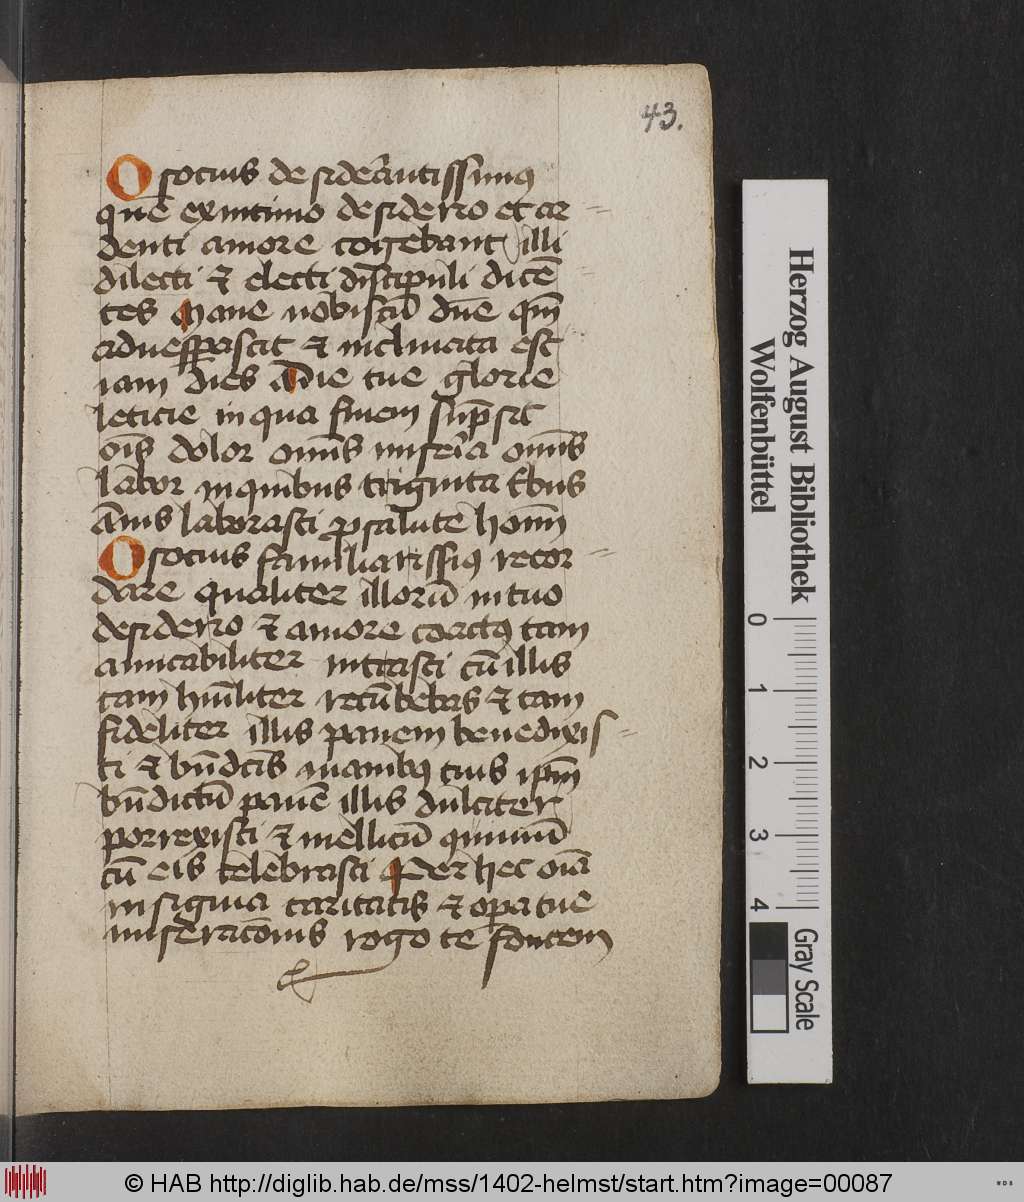 43.
O socius desiderantissimus
quē ex intimo desiderio et ar
denti amore cogebant illi
dilecti et electi discipuli dicē
tes Mane nobiscū dn̄e qm̄
advesperascit et inclinata est
iam dies a die tue glorie
leticie in qua finem sūpsit
oīs dolor omīs miseria omīs
labor in quibus triginta tribus
ānis laborasti pro salute homīn
O socius familiarissimus recor
dare qualiter illorū in tuo
desiderio et amore coactus tam
amicabiliter intrasti cū illis
tam humīliter recūbebas et tam
fideliter illis panem benedixis
ti et bn̄dictis manibus tuis ipm̄
bn̄dictū panē illis dulciter
porrexisti et mellitū
cū eis celebrasti Per hec oīa
insignia caritatis et opera tue
miseracōnis rogo te fontem
Herzog August Bibliothek
Wolfenbüttel
0 1 2 3 4
Gray Scale
© HAB http://diglib.hab.de/mss/1402-helmst/start.htm?image=00087